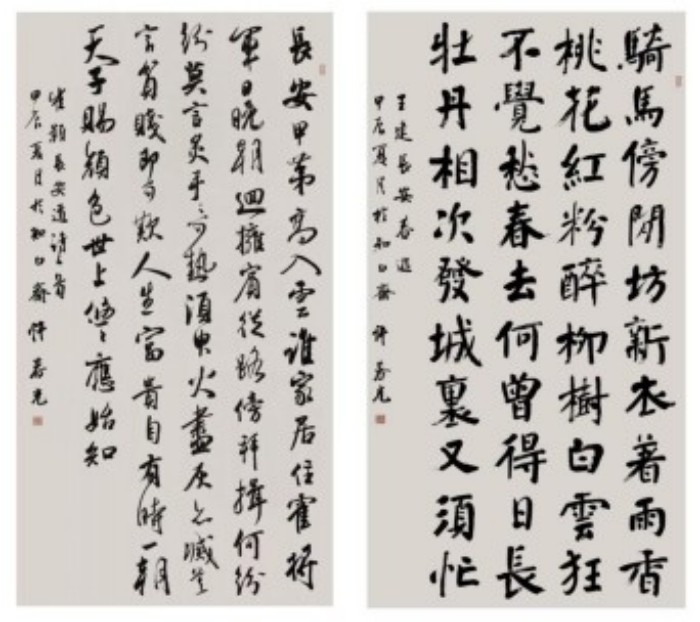 騎馬傍閑坊新衣着雨香
桃花紅粉醉柳樹白雲狂
不覺愁春去何曾得日長
牡丹相次發城裏又須忙
王建長安春遊
甲辰夏月於知白齋 許
長安甲第高入雲誰家居住霍將
軍日晚朝迴擁賓從路傍拜揖何紛
紛莫言炙手手可熱須臾火盡灰亦滅莫
言貧賤即可欺人生富貴自有時一朝
天子賜顏色世上悠悠應始知
崔顥長安道詩一首
甲辰夏月於知白齋 許